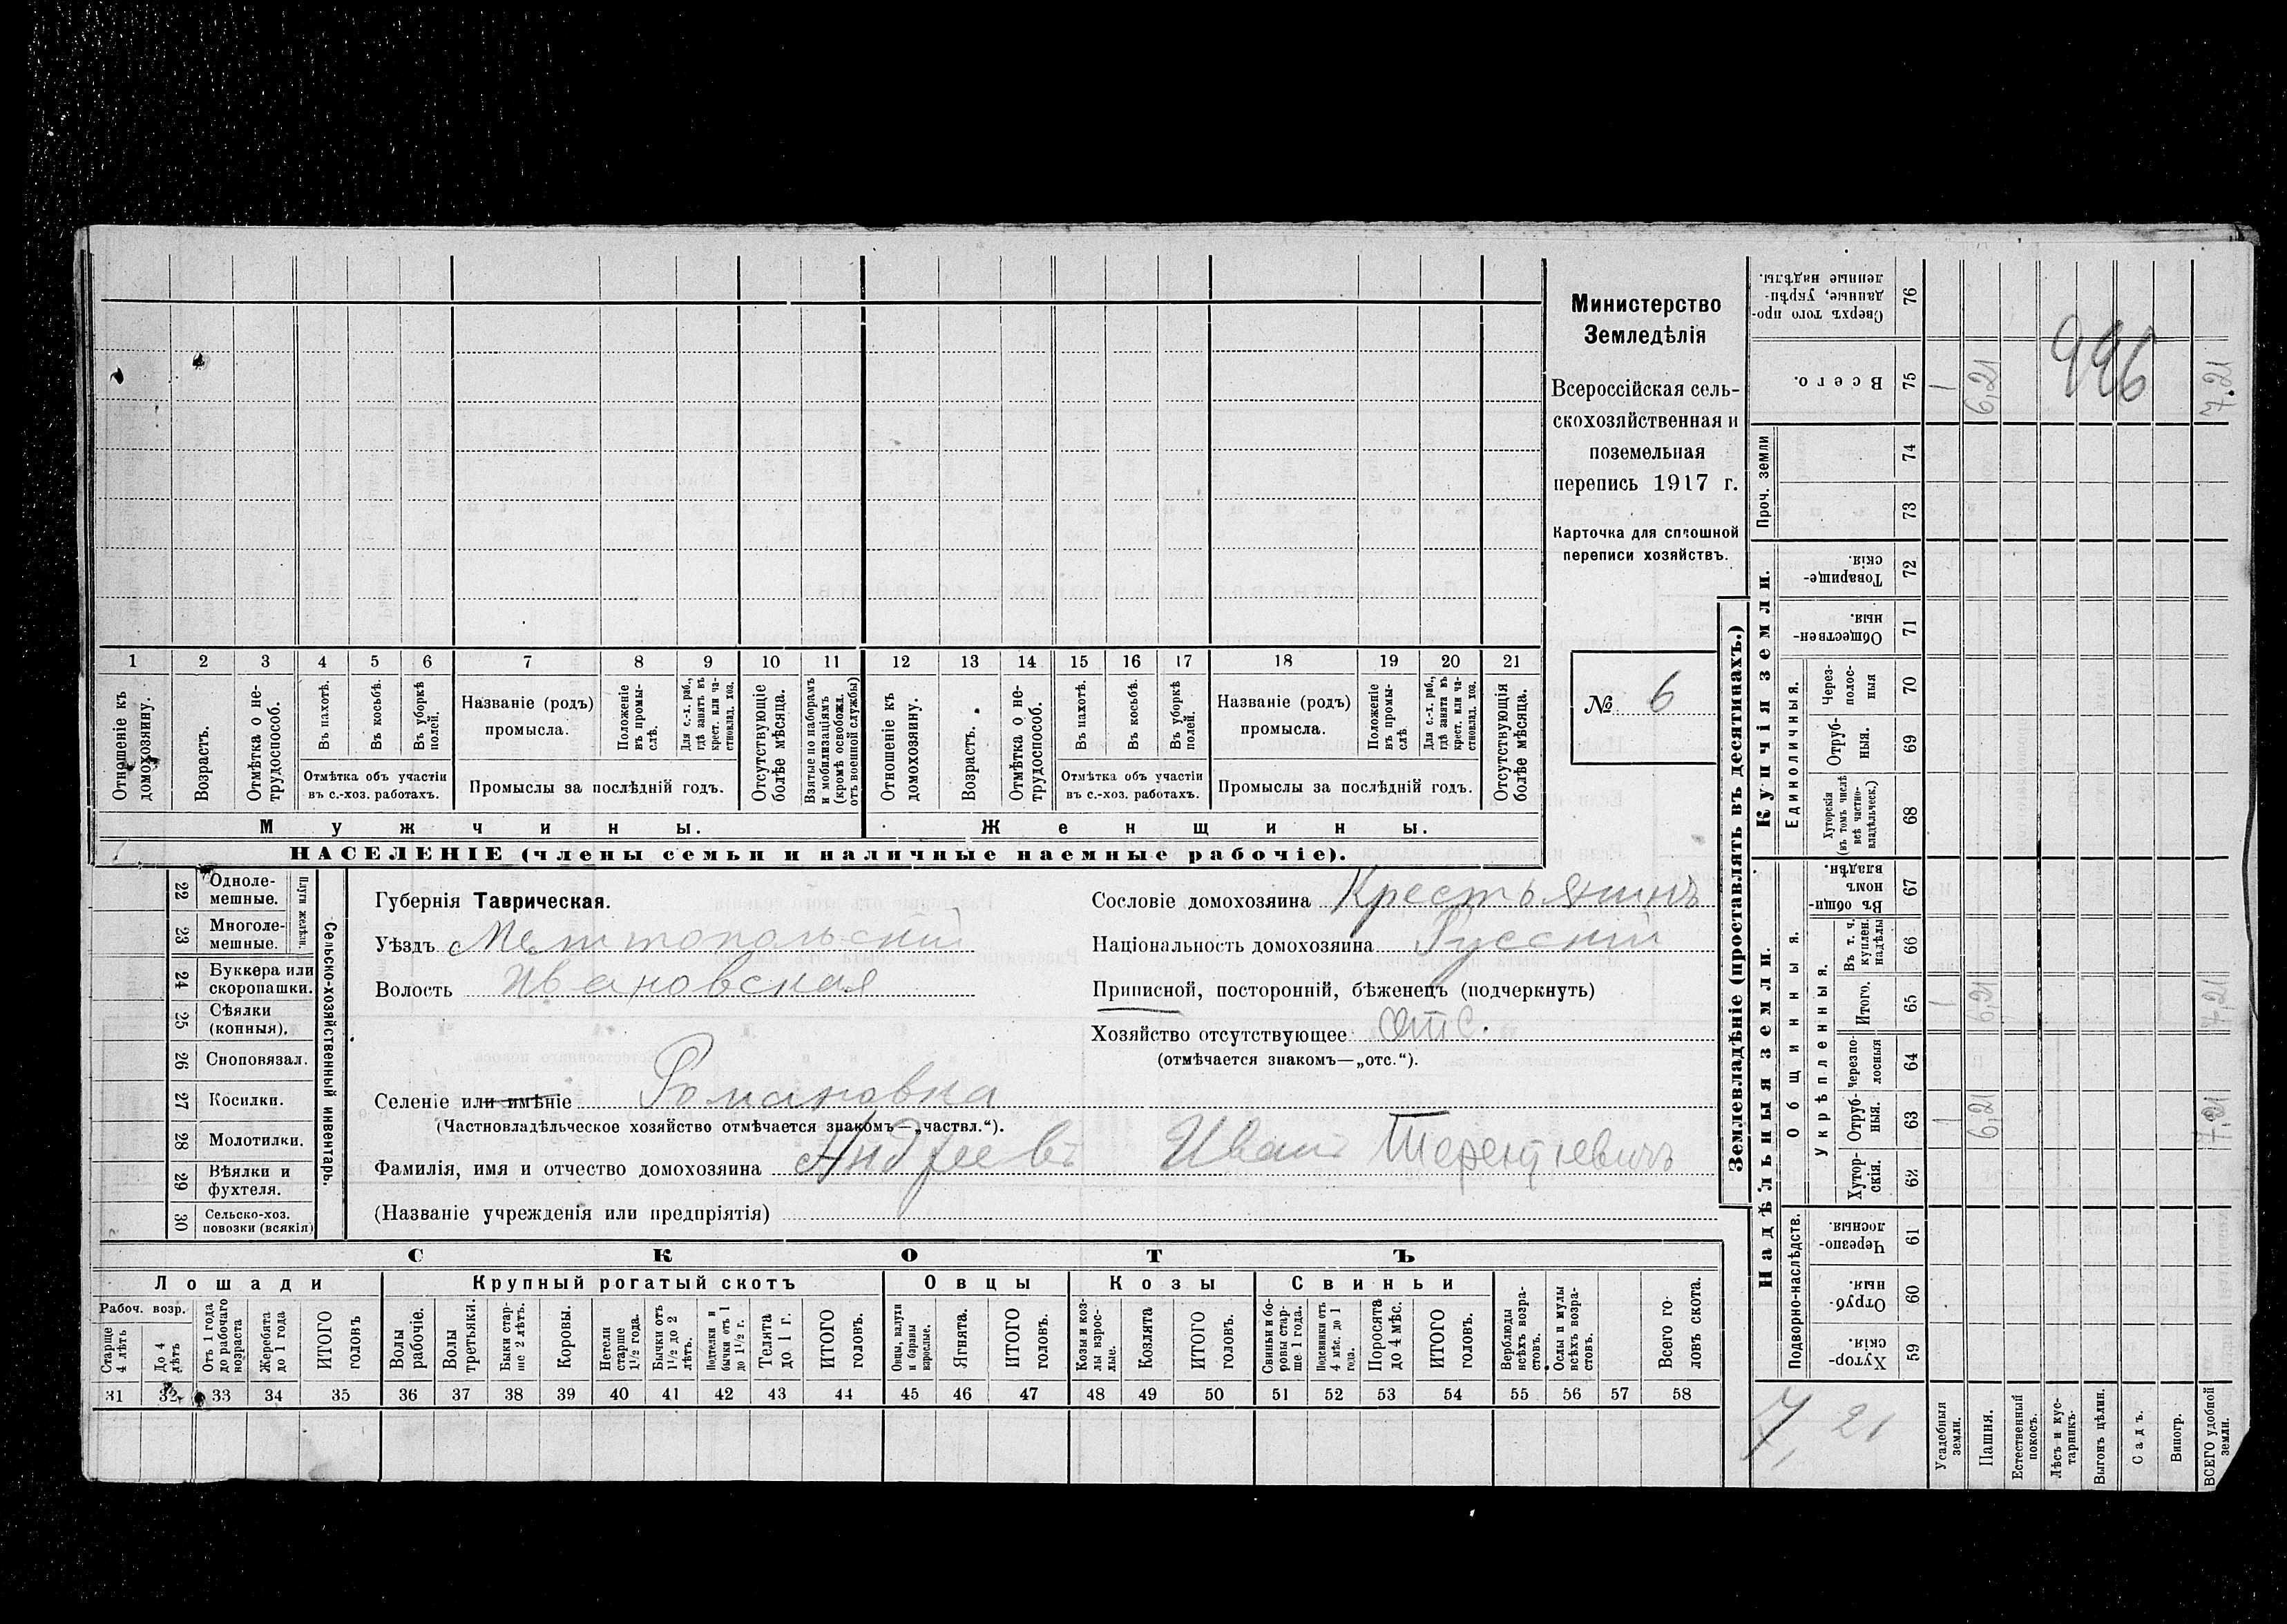 1 2 3 4 5 6 7 8 9 10 11 12 13 14 15 16 17 18 19 20 21
Отношеніе къ домохозяину.
Возрастъ.
Отмѣтка о не-трудоспособ.
Въ пахотѣ.
Въ косьбѣ.
Въ уборкѣ полей.
Отмѣтка объ участіи
въ с.-хоз. работахъ.
Названіе (родъ)
промысла.
Положеніе въ промы-слѣ.
Для с.-х. раб., гдѣ занятъ въ крест. или ча-стновлад. хоз.
Промыслы за послѣдній годъ.
Отсутствующіе болѣе мѣсяца.
Взятые по наборамъ и мобилизаціямъ (кромѣ освобожд. отъ военной службы)
Отношеніе къ домохозяину.
Возрастъ.
Отмѣтка о не-трудоспособ.
Въ пахотѣ.
Въ косьбѣ.
Въ уборкѣ полей.
Отмѣтка объ участіи
въ с.-хоз. работахъ.
Названіе (родъ)
промысла.
Положеніе въ промы-слѣ
Для с.-х. раб., гдѣ занята въ крест. или ча-стновлад. хоз.
Промыслы за послѣдній годъ.
Отсутствующія болѣе мѣсяца.
Мужчины.
Женщины.
НАСЕЛЕНІЕ (члены семьи и наличные наемные рабочіе).
Министерство
Земледѣлія
Всероссійская сель-
скохозяйственная и
поземельная
перепись 1917 г.
Карточка для сплошной
переписи хозяйствъ.
№ 6
Сельско-хозяйственный инвентарь.
Плуги желѣзн.
22 Одноле-
мешные.
23 Многоле-
мешные.
24 Буккера или
скоропашки.
25 Сѣялки
(конныя).
26 Сноповязал.
27 Косилки.
28 Молотилки.
29 Вѣялки и
фухтеля.
30 Сельско-хоз.
повозки (всякія)
Губернія Таврическая.
Уѣздъ Мелитопольскій
Волость Ивановская
Сословіе домохозяина Крестьянинъ
Національность домохозяина Русскій
Приписной, посторонній, бѣженецъ (подчеркнуть)
Хозяйство отсутствующее отс.
(отмѣчается знакомъ—„отс.“).
Селеніе или имѣніе Романовка
(Частновладѣльческое хозяйство отмѣчается знакомъ—„частвл.“).
Фамилія, имя и отчество домохозяина Андреевъ Иванъ Терентіевичъ
(Названіе учрежденія или предпріятія)
СКОТЪ
Лошади
Крупный рогатый скотъ
Овцы
Козы
Свиньи
Рабоч. возр.
Старше 4 лѣтъ
До 4 лѣтъ
Отъ 1 года до рабочаго возраста
Жеребята до 1 года
ИТОГО головъ
Волы рабочіе.
Волы третьяки.
Быки стар-ше 2 лѣтъ.
Коровы.
Нетели старше 1½ года.
Бычки отъ 1½ до 2 лѣтъ.
Подтелки и бычки отъ 1 до 1½ г.
Телята до 1 г.
ИТОГО головъ.
Овцы, валухи и бараны взрослые.
Ягнята.
ИТОГО головъ.
Козы и коз-лы взрос-лые.
Козлята
ИТОГО головъ.
Свиньи и бо-ровы стар-ше 1 года.
Подсвинки отъ 4 мѣс. до 1 года.
Поросята до 4 мѣс.
ИТОГО головъ.
Верблюды всѣхъ возра-стовъ.
Ослы и мулы всѣхъ возра-стовъ.
Всего го-ловъ скота.
31 32 33 34 35 36 37 38 39 40 41 42 43 44 45 46 47 48 49 50 51 52 53 54 55 56 57 58
Землевладѣніе (проставлять въ десятинахъ.)
Купчія земли.
Надѣльныя земли.
Сверхъ того про-данные, укрѣп-ленные надѣлы. 76
Всего. 75 1 6,21 7,21
996
Проч. земли
74
73
Товарище-скія 72
Обществен-ныя. 71
Единоличныя.
Через-полос-ныя 70
Отруб-ныя. 69
Хуторскія (въ томъ числѣ всѣ частно-владѣльческ.) 68
Въ общи-номъ владѣн. 67
Общинныя.
Укрѣпленныя.
Въ т. ч. куплен. надѣлы 66
Итого. 65 1 6,21 7,21
Черезпо-лосныя 64
Отруб-ныя. 63 1 6,21 7,21
Хутор-скія. 62
Подворно-наслѣдств.
Черезпо-лосныя. 61
Отруб-ныя. 60
Хутор-скія. 59
7,21
Усадебныя земли.
Пашня.
Естественный покосъ.
Лѣсъ и кус-тарникъ.
Выгонъ цѣлин.
Садъ.
Виногр.
ВСЕГО удобной земли.